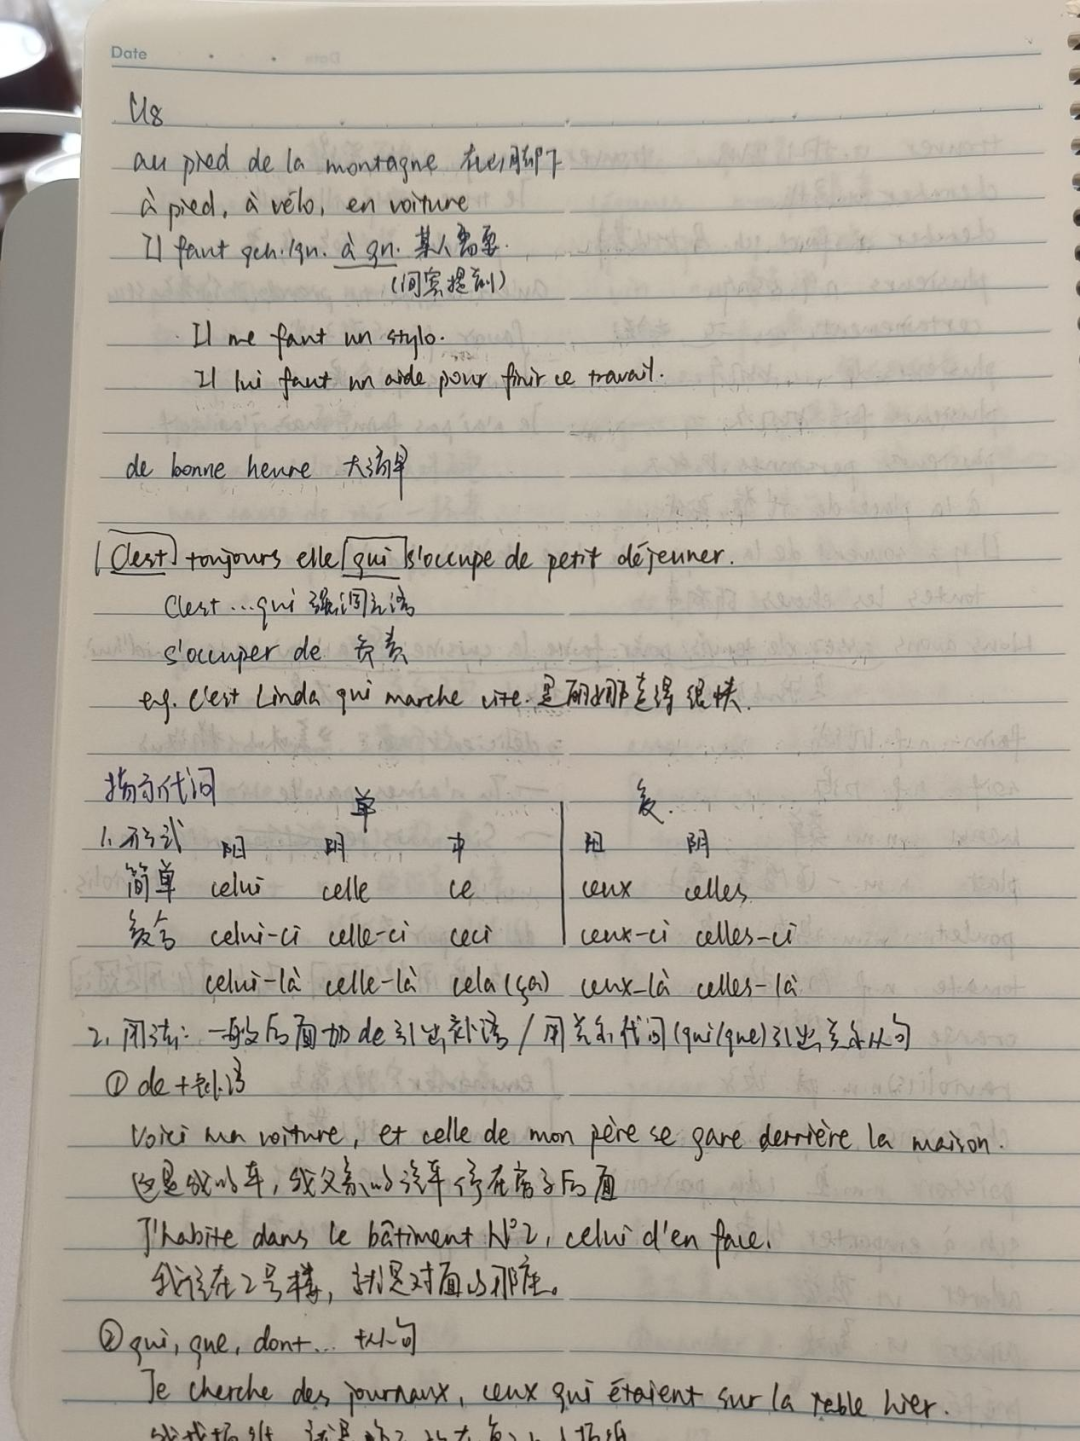 Date
U8
au pied de la montagne 在山脚下
à pied, à vélo, en voiture
Il faut qch./qn. à qn. 某人需要.
(间宾提前)
Il me faut un stylo.
Il lui faut un aide pour finir ce travail.
de bonne heure 大清早
C'est toujours elle qui s'occupe de petit déjeuner.
C'est ... qui 强调主语
s'occuper de 负责
e.g. C'est Linda qui marche vite. 是丽娜走得很快.
指示代词 单 复.
1. 形式 阳 阴 中 阳 阴
简单 celui celle ce ceux celles
复合 celui-ci celle-ci ceci ceux-ci celles-ci
celui-là celle-là cela (ça) ceux-là celles-là
2. 用法: 一般后面加de引出补语 / 用关系代词(qui/que)引出关系从句
① de + 补语
Voici ma voiture, et celle de mon père se gare derrière la maison.
这是我的车, 我父亲的汽车停在房子后面
J'habite dans le bâtiment N°2, celui d'en face.
我住在2号楼, 就是对面的那座。
② qui, que, dont ... +从句
Je cherche des journaux, ceux qui étaient sur la table hier.